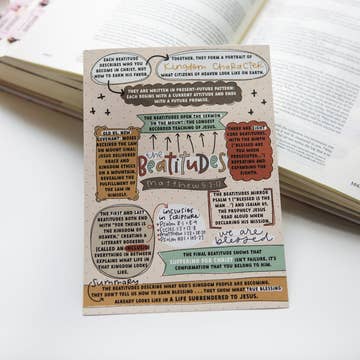 EACH BEATITUDE
DESCRIBES WHO YOU
BECOME IN CHRIST, NOT
HOW TO EARN HIS FAVOR.
TOGETHER, THEY FORM A PORTRAIT OF
Kingdom Character
WHAT CITIZENS OF HEAVEN LOOK LIKE ON EARTH.
THEY ARE WRITTEN IN PRESENT-FUTURE PATTERN:
EACH BEGINS WITH A CURRENT ATTITUDE AND ENDS
WITH A FUTURE PROMISE.
THE BEATITUDES OPEN THE SERMON
ON THE MOUNT: THE LONGEST
RECORDED TEACHING OF JESUS.
OLD VS. NEW
COVENANT: MOSES
RECEIVED THE LAW
ON MOUNT SINAI
JESUS DELIVERED
GRACE AND
KINGDOM ETHICS
ON A MOUNTAIN,
REVEALING THE
FULFILLMENT OF
THE LAW IN
HIMSELF.
the
Beatitudes
Matthew 5:1-12
THERE ARE EIGHT
CORE BEATITUDES,
WITH THE NINTH
("BLESSED ARE
YOU WHEN
PERSECUTED...")
REPEATING AND
EXPANDING THE
EIGHTH.
THE FIRST AND LAST
BEATITUDES BOTH END
WITH "FOR THEIRS IS
THE KINGDOM OF
HEAVEN," CREATING A
LITERARY BOOKEND
(CALLED AN INCLUSIO)
EVERYTHING IN
BETWEEN EXPLAINS
WHAT LIFE IN
THAT KINGDOM
LOOKS LIKE.
inclusios
in Scripture
THE BEATITUDES MIRROR
PSALM 1 ("BLESSED IS THE
MAN...") AND ISAIAH 61,
THE PROPHECY JESUS
READ ALOUD WHEN
DECLARING HIS MISSION.
we are
blessed
THE FINAL BEATITUDE SHOWS THAT
SUFFERING FOR CHRIST ISN'T FAILURE, IT'S
CONFIRMATION THAT YOU BELONG TO HIM.
Summary
THE BEATITUDES DESCRIBE WHAT GOD'S KINGDOM PEOPLE ARE BECOMING.
THEY DON'T TELL US HOW TO EARN BLESSING ... THEY SHOW WHAT TRUE BLESSING
ALREADY LOOKS LIKE IN A LIFE SURRENDERED TO JESUS.